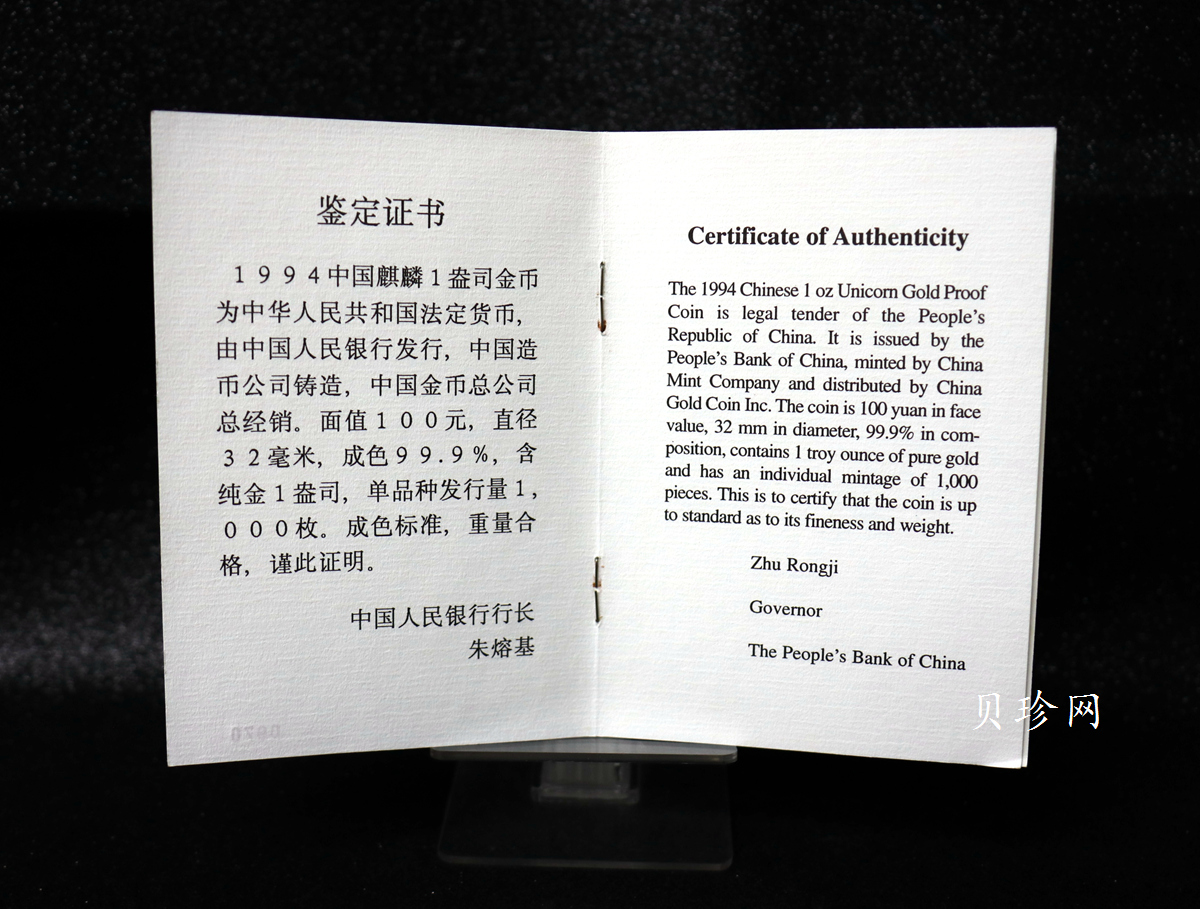 鉴定证书
１９９４中国麒麟１盎司金币
为中华人民共和国法定货币，
由中国人民银行发行，中国造
币公司铸造，中国金币总公司
总经销。面值１００元，直径
３２毫米，成色９９.９%，含
纯金１盎司，单品种发行量１，
０００枚。成色标准，重量合
格，谨此证明。
中国人民银行行长
朱熔基
Certificate of Authenticity
The 1994 Chinese 1 oz Unicorn Gold Proof
Coin is legal tender of the People's
Republic of China. It is issued by the
People's Bank of China, minted by China
Mint Company and distributed by China
Gold Coin Inc. The coin is 100 yuan in face
value, 32 mm in diameter, 99.9% in com-
position, contains 1 troy ounce of pure gold
and has an individual mintage of 1,000
pieces. This is to certify that the coin is up
to standard as to its fineness and weight.
Zhu Rongji
Governor
The People's Bank of China
贝珍网